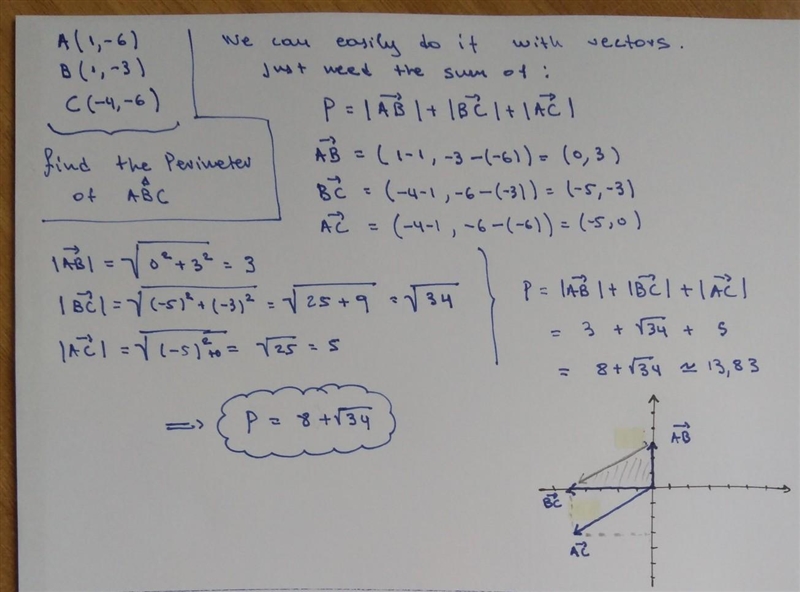 A(1,-6)
B(1,-3)
C(-4,-6)
find the Perimeter
of AB̂C
We can easily do it with vectors.
Just need the sum of:
P = |AB⃗| + |BC⃗| + |AC⃗|
AB⃗ = (1-1, -3-(-6)) = (0,3)
BC⃗ = (-4-1, -6-(-3)) = (-5,-3)
AC⃗ = (-4-1, -6-(-6)) = (-5,0)
|AB⃗| = √(0²+3²) = 3
|BC⃗| = √((-5)²+(-3)²) = √(25+9) = √34
|AC⃗| = √((-5)²+0) = √25 = 5
P = |AB⃗| + |BC⃗| + |AC⃗|
= 3 + √34 + 5
= 8+√34 ≃ 13,83
⇒ P = 8+√34
AB⃗
BC⃗
AC⃗